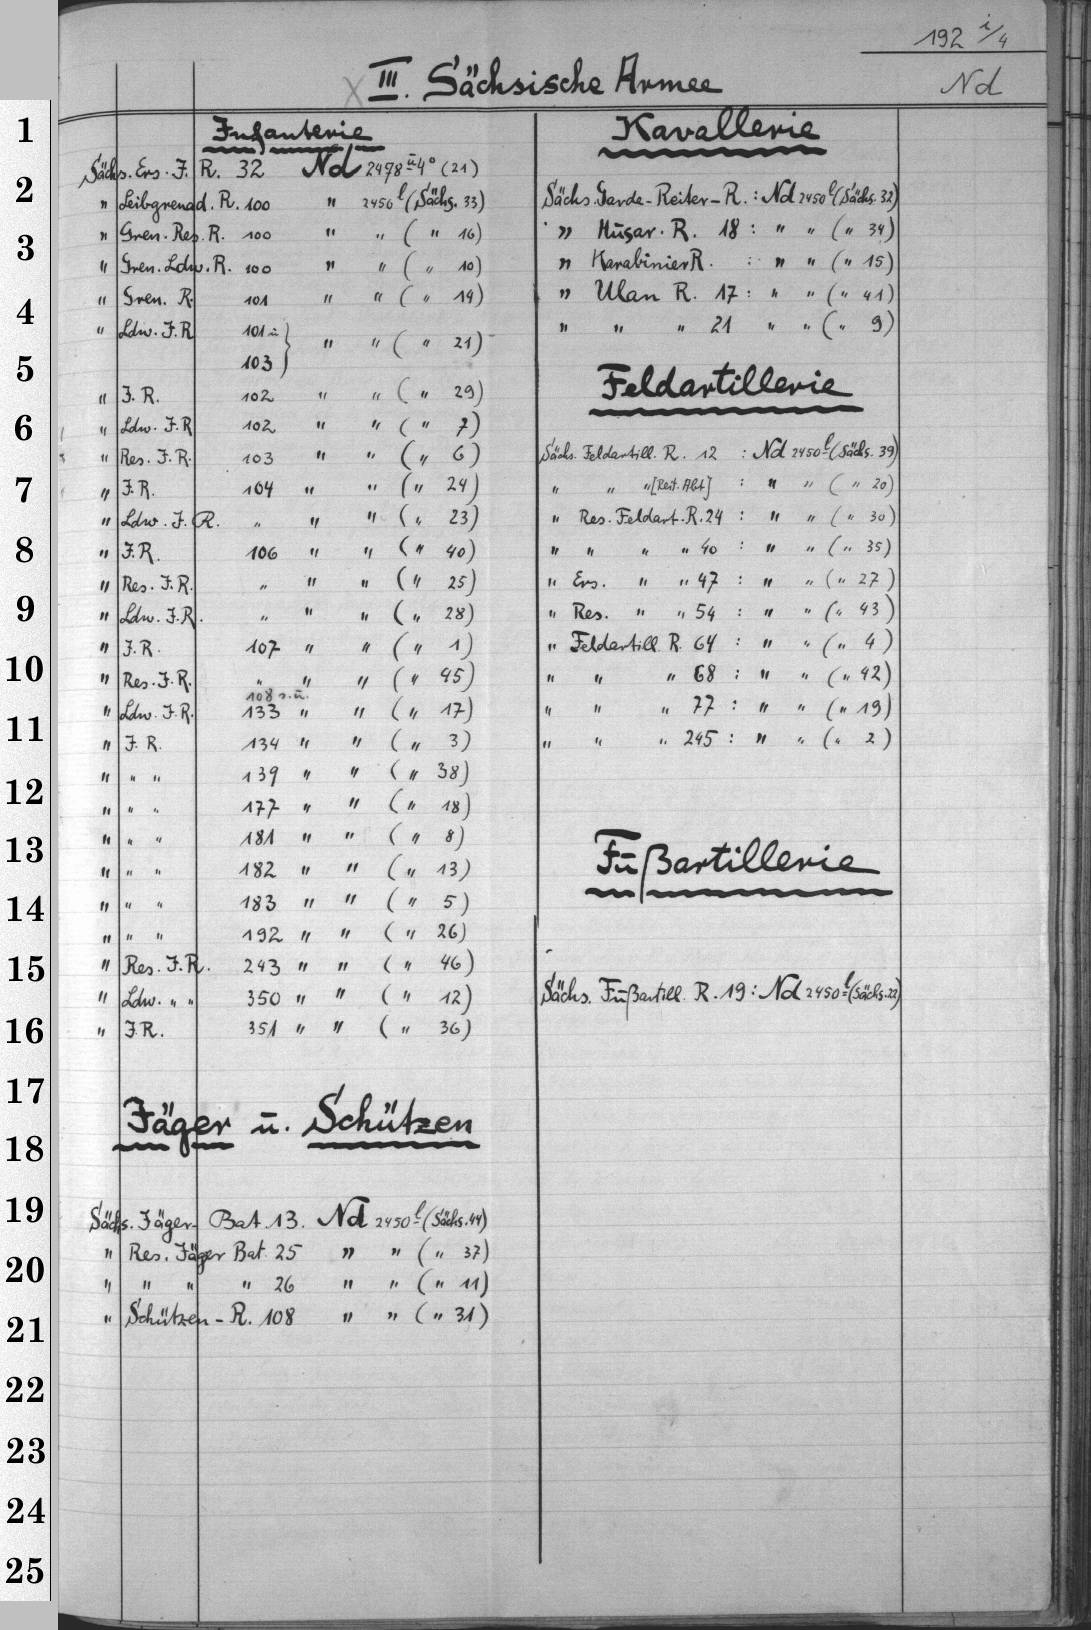 192 i/4
Nd
III. Sächsische Armee
Infanterie
Sächs. Ers. I. R. 32 Nd 2478 ü 4° (21)
" Leibgrenad. R. 100 " 2450 l (Sächs. 33)
" Gren. Res. R. 100 " " ( " 16)
" Gren. Ldw. R. 100 " " ( " 10)
" Gren. R. 101 " " ( " 14)
" Ldw. I. R. 101 ü
103 } " " ( " 21)
" I. R. 102 " " ( " 29)
" Ldw. I. R. 102 " " ( " 7)
" Res. I. R. 103 " " ( " 6)
" I. R. 104 " " ( " 24)
" Ldw. I. R. " " " ( " 23)
" I. R. 106 " " ( " 40)
" Res. I. R. " " " ( " 25)
" Ldw. I. R. " " " ( " 28)
" I. R. 107 " " ( " 1)
" Res. I. R. " " " ( " 45)
108 s. u.
" Ldw. I. R. 133 " " ( " 17)
" I. R. 134 " " ( " 3)
" " " 139 " " ( " 38)
" " " 177 " " ( " 18)
" " " 181 " " ( " 8)
" " " 182 " " ( " 13)
" " " 183 " " ( " 5)
" " " 192 " " ( " 26)
" Res. I. R. 243 " " ( " 46)
" Ldw. " " 350 " " ( " 12)
" I. R. 351 " " ( " 36)
Jäger u. Schützen
Sächs. Jäger- Bat. 13. Nd 2450 l (Sächs. 44)
" Res. Jäger Bat. 25 " " ( " 37)
" " " " 26 " " ( " 11)
" Schützen - R. 108 " " ( " 31)
Kavallerie
Sächs. Garde-Reiter-R. : Nd 2450 l (Sächs. 32)
" Husar. R. 18 : " " ( " 34)
" Karabinier R. : " " ( " 15)
" Ulan R. 17 : " " ( " 41)
" " " 21 " " ( " 9)
Feldartillerie
Sächs. Feldartill. R. 12 : Nd 2450 l (Sächs. 39)
" " " [Reit. Abt] : " " ( " 20)
" Res. Feldart. R. 24 : " " ( " 30)
" " " " 40 : " " ( " 35)
" Ers. " " 47 : " " ( " 27)
" Res. " " 54 : " " ( " 43)
" Feldartill R. 64 : " " ( " 4)
" " " 68 : " " ( " 42)
" " " 77 : " " ( " 19)
" " " 245 : " " ( " 2)
Fußartillerie
Sächs. Fußartill. R. 19 : Nd 2450 l (Sächs. 22)
1
2
3
4
5
6
7
8
9
10
11
12
13
14
15
16
17
18
19
20
21
22
23
24
25